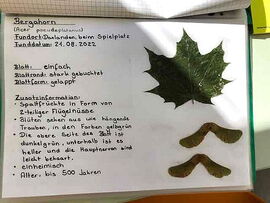 Bergahorn
(Acer pseudoplatanus)
Fundort: Daxlanden, beim Spielplatz
Funddatum: 21.08.2022
Blatt: einfach
Blattrand: stark gebuchtet
Blattform: gelappt
Zusatzinformation:
• Spaltfrüchte in Form von
2-teiliger Flügelnüsse
• Blüten sehen aus wie hängende
Trauben, in den Farben gelbgrün
• Die obere Seite des Blatt ist
dunkelgrün, unterhalb ist es
heller und die Hauptnerven sind
leicht behaart.
• einheimisch
• Alter: bis 500 Jahren